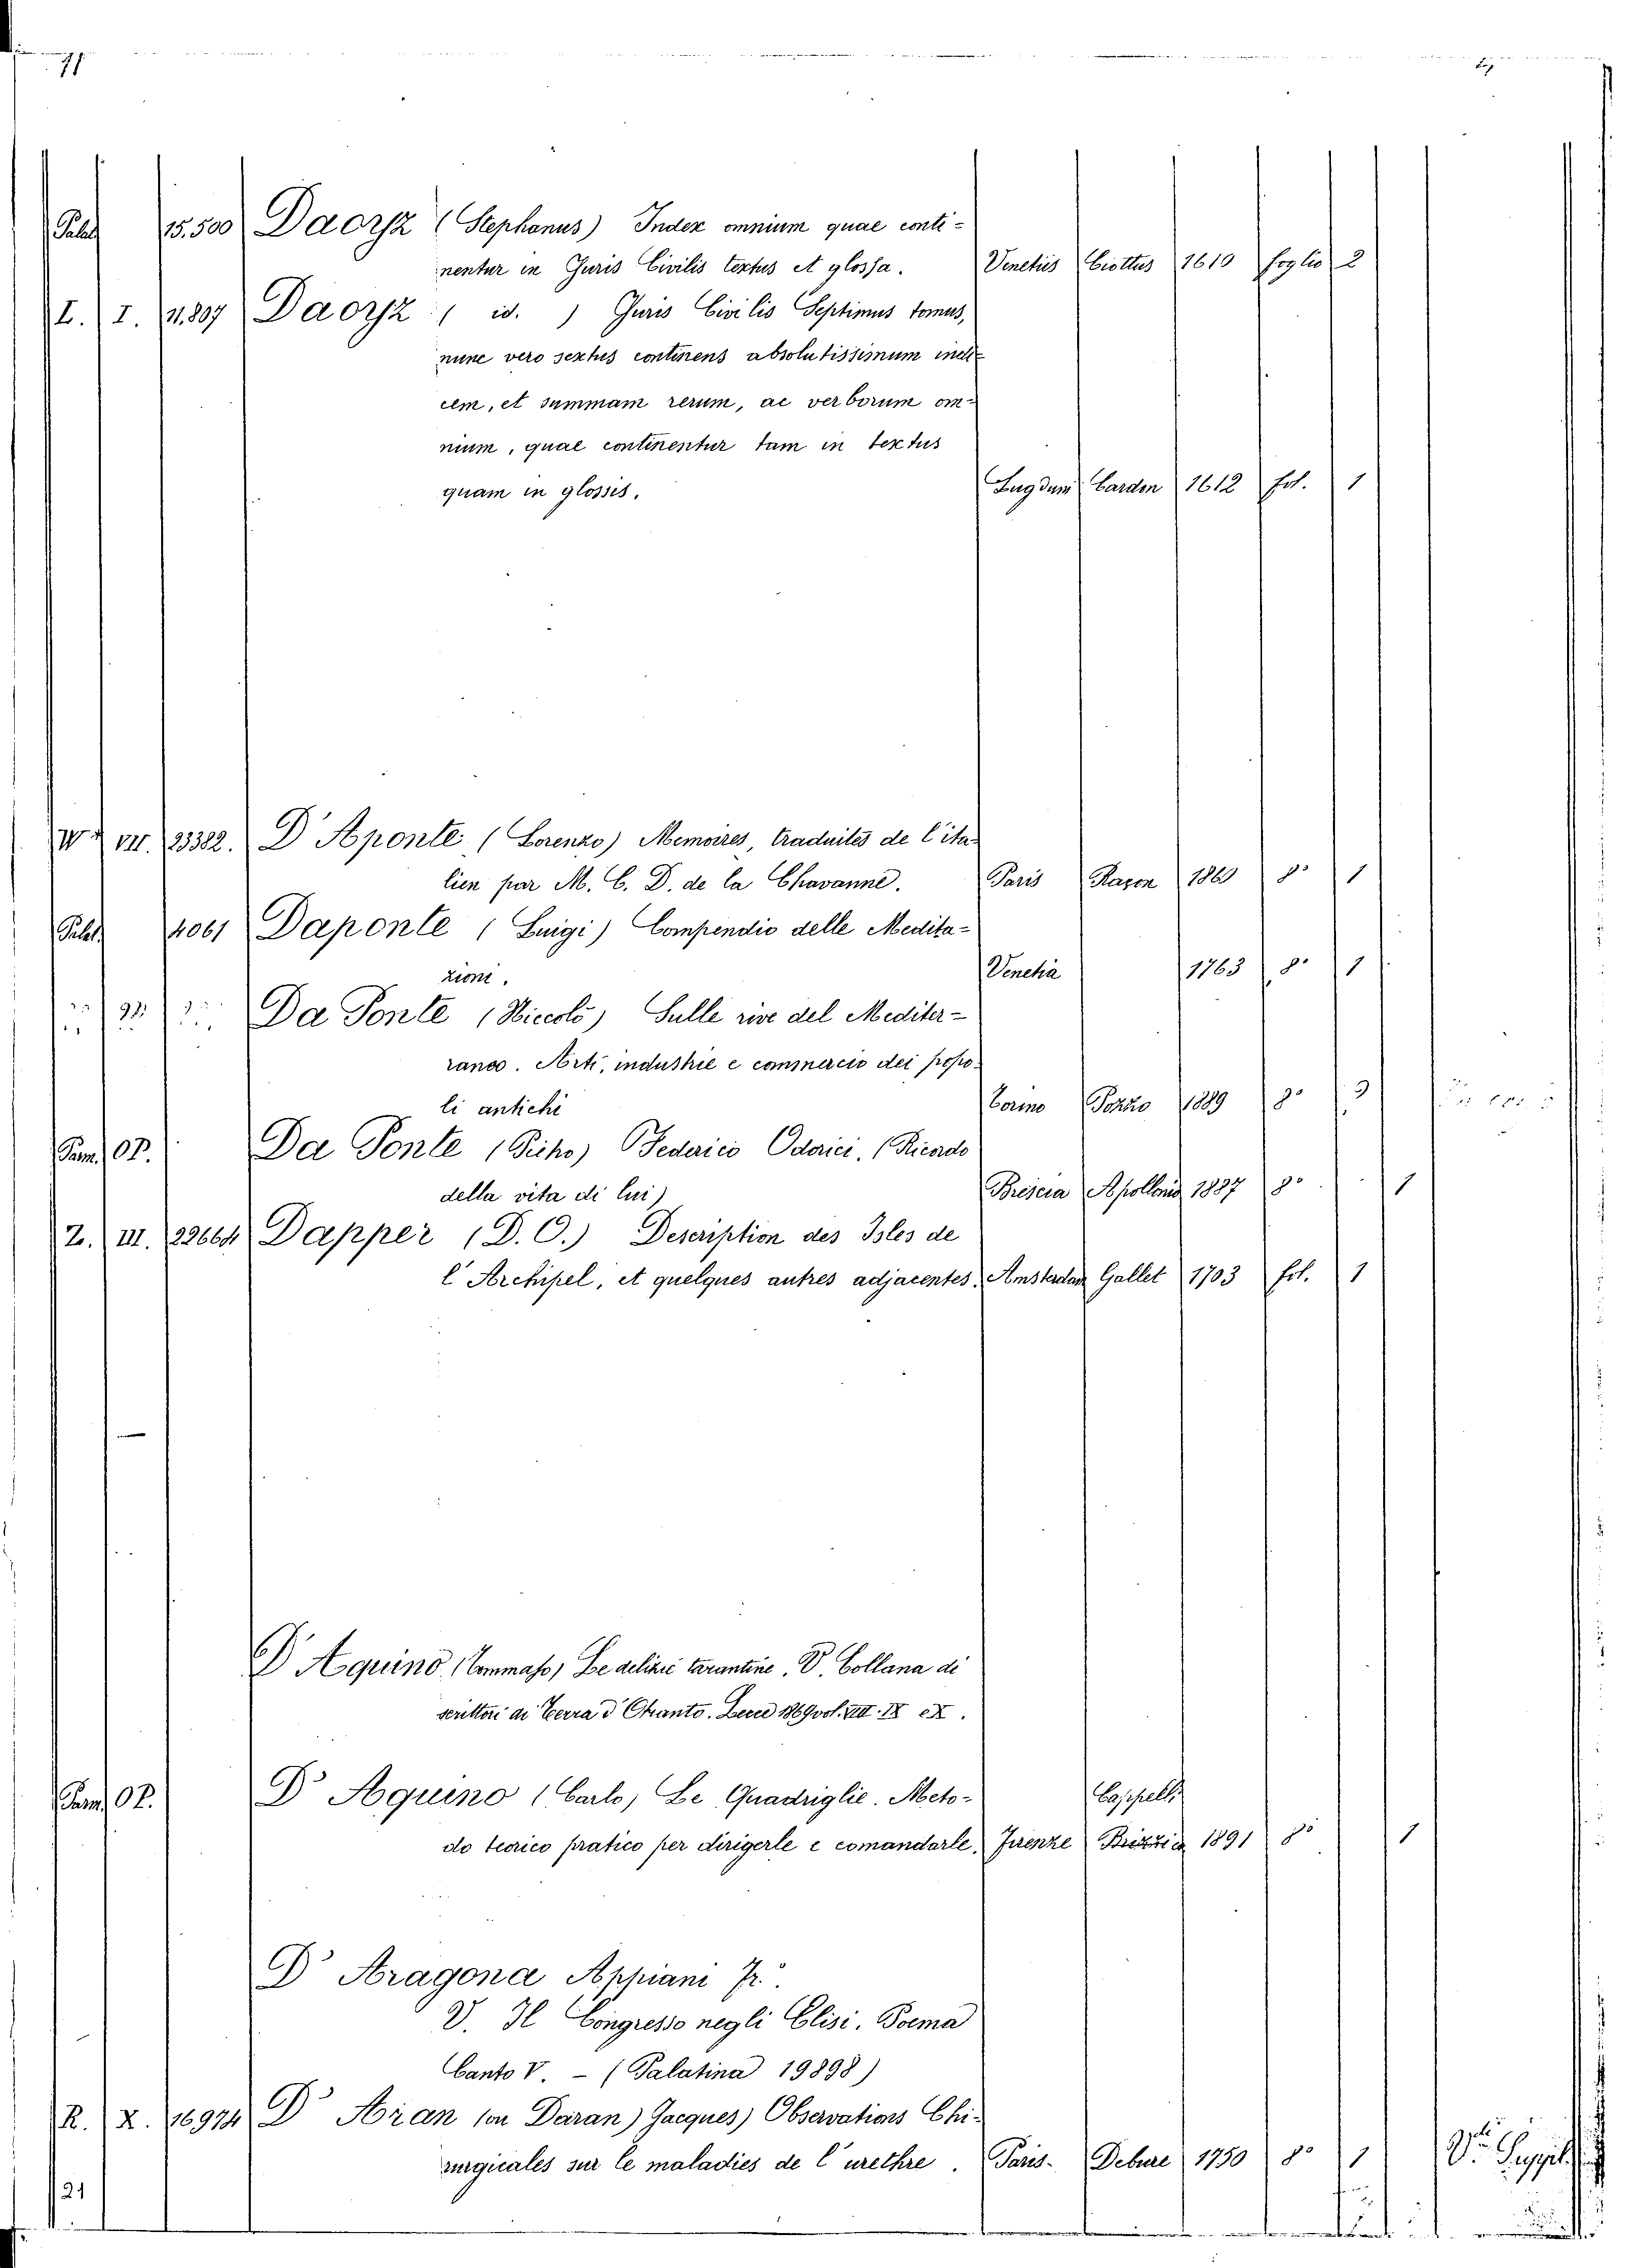 Palat. 15.500 Daoyz (Stephanus) Index omnium quae conti-
nentur in Juris Civilis textus et glossa. Venetiis Ciottus 1610 foglio 2
I. I. 11.807 Daoyz ( id. ) Juris Civilis Septimus tomus,
nunc vero sextus continens absolutissimum indi-
cem, et summam rerum, ac verborum om-
nium, quae continentur tam in textus
quam in glossis. Lugduni Cardon 1612 fol. 1
VII. 23382. D'Aponte (Lorenzo) Memoires, traduites de l'ita-
lien par M. C. D. de la Chavanne. Paris Pagon 1860 8° 1
Palat. 4061 Daponte (Luigi) Compendio delle Medita-
zioni. Venetia 1763 8° 1
Da Ponte (Niccolò) Sulle rive del Mediter-
raneo. Arti, industrie e commercio dei popo-
li antichi Torino Pozzo 1889 8°
Pam. Da Ponte (Pietro) Federico Odorici. (Ricordo
della vita di lui) Brescia Apollonio 1887 8° 1
Z. III. 22664 Dapper (D. O.) Description des Isles de
l'Archipel, et quelques autres adjacentes. Amsterdam Gallet 1703 fol. 1
D'Aquino (Tommaso) Le delizie tarantine. V. Collana di
scrittori di Terra d'Otranto. Lecce 1869 vol. VIII. IX e X.
Pam. D'Aquino (Carlo) Le Quadriglie. Meto- Cappelli
do teorico pratico per dirigerle e comandarle. Firenze 1891 8° 1
D'Aragona Appiani Fr.
V. Il Congresso negli Elisi. Poema
Canto V. - (Palatina 19898)
R. X. 16974 D'Aran (ou Daran) Jacques) Observations Chi-
rurgicales sur le maladies de l'urethre. Paris. Debure 1750 8° 1
21